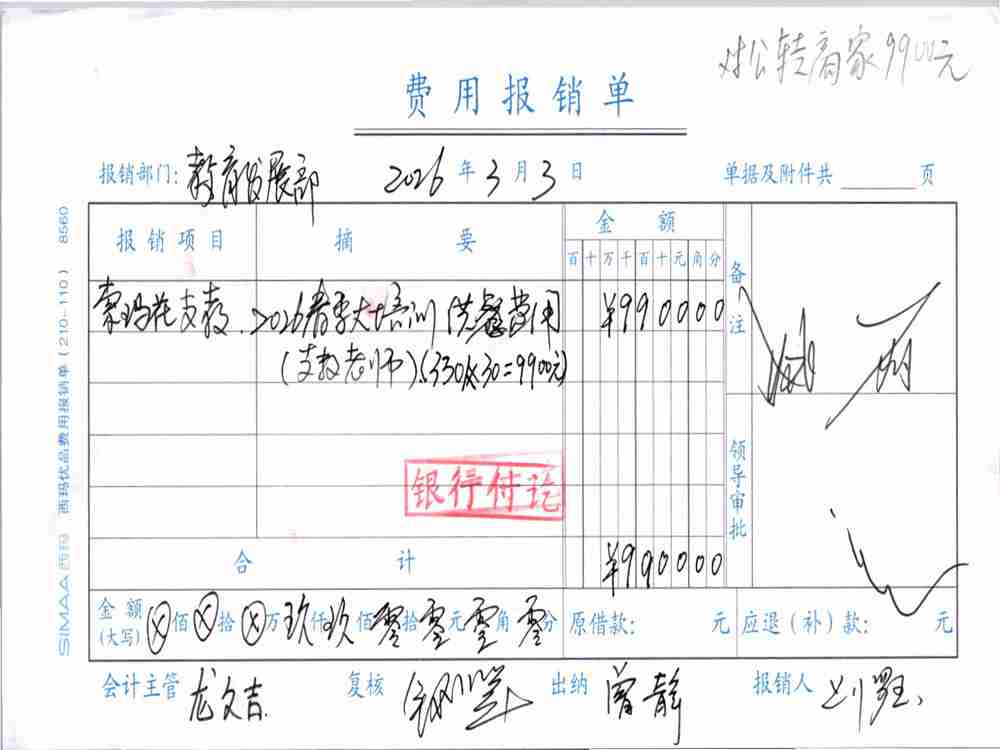 对公转商家9900元
费用报销单
报销部门: 教育发展部 2026年3月3日 单据及附件共 页
报销项目 摘要 金额 备注
百十万千百十元角分
索玛花支教 2026春季大培训 供餐费用 ¥990000
(支教老师)(330人×30=9900元)
银行付讫
领导审批
合计 ¥990000
金额(大写) ⊗佰⊗拾⊗万玖仟玖佰零拾零元零角零分 原借款: 元 应退(补)款: 元
会计主管 龙文吉 复核 出纳 曾静 报销人
SIMAA西玛 西玛优品费用报销单(210-110) 8560